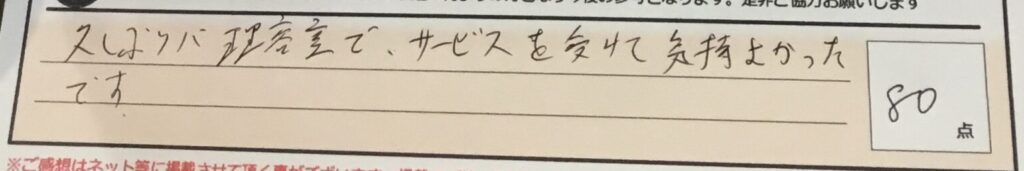 今後の参考となります。是非ご協力お願いします
久しぶりパ理容室で、サービスを受けて気持よかった
です
80
点
※ご感想はネット等に掲載させて頂く事がございます。